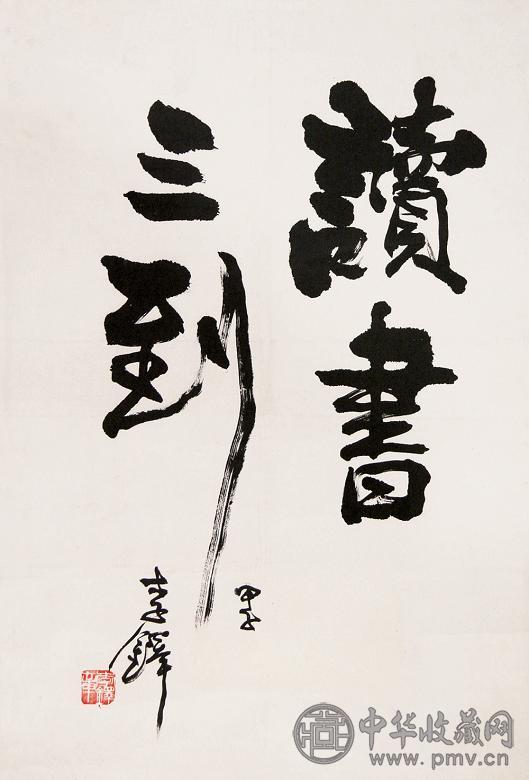 讀書
三到
甲子
李鐸
中华收藏网
www.pmv.cn